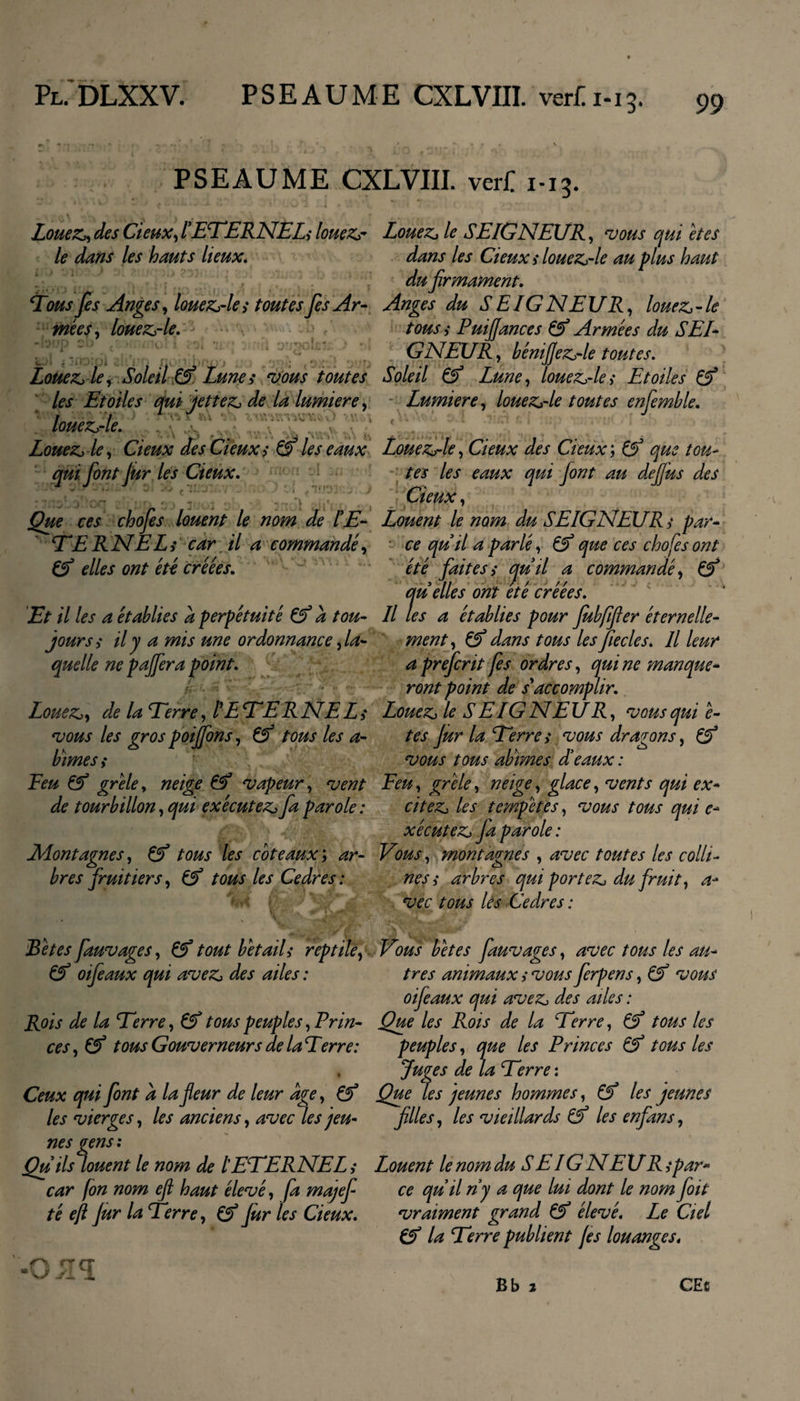 PL. DLXXV. PSEAUME CXLVIII. verſ. 1-13. 99
PSEAUME CXLVIII. verſ. 1-13.
Louez, des Cieux, l'ETERNEL; louez-
le dans les hauts lieux.
Tous ſes Anges, louez-le; toutes ſes Ar-
mées, louez-le.
Louez-le, Soleil & Lune; vous toutes
les Etoiles qui jettez de la lumiere,
louez-le.
Louez-le, Cieux des Cieux; & les eaux
qui ſont ſur les Cieux.
Que ces choſes louent le nom de l'E-
TERNEL; car il a commandé,
& elles ont été créées.
Et il les a établies à perpétuité & à tou-
jours; il y a mis une ordonnance, la-
quelle ne paſſera point.
Louez, de la Terre, l'ETERNEL;
vous les gros poiſſons, & tous les a-
bîmes;
Feu & grêle, neige & vapeur, vent
de tourbillon, qui exécutez ſa parole:
Montagnes, & tous les côteaux; ar-
bres fruitiers, & tous les Cedres:
Bêtes ſauvages, & tout bétail; reptile,
& oiſeaux qui avez des ailes:
Rois de la Terre, & tous peuples, Prin-
ces, & tous Gouverneurs de la Terre:
Ceux qui ſont à la fleur de leur âge, &
les vierges, les anciens, avec les jeu-
nes gens:
Qu'ils louent le nom de l'ETERNEL;
car ſon nom eſt haut élevé, ſa majeſ-
té eſt ſur la Terre, & ſur les Cieux.
Louez le SEIGNEUR, vous qui êtes
dans les Cieux; louez-le au plus haut
du firmament.
Anges du SEIGNEUR, louez-le
tous; Puiſſances & Armées du SEI-
GNEUR, béniſſez-le toutes.
Soleil & Lune, louez-le; Etoiles &
Lumiere, louez-le toutes enſemble.
Louez-le, Cieux des Cieux; & que tou-
tes les eaux qui ſont au deſſus des
Cieux,
Louent le nom du SEIGNEUR; par-
ce qu'il a parlé, & que ces choſes ont
été faites; qu'il a commandé, &
qu'elles ont été créées.
Il les a établies pour ſubſiſter éternelle-
ment, & dans tous les ſiecles. Il leur
a preſcrit ſes ordres, qui ne manque-
ront point de s'accomplir.
Louez le SEIGNEUR, vous qui ê-
tes ſur la Terre; vous dragons, &
vous tous abîmes d'eaux:
Feu, grêle, neige, glace, vents qui ex-
citez les tempêtes, vous tous qui e-
xécutez ſa parole:
Vous, montagnes, avec toutes les colli-
nes; arbres qui portez du fruit, a-
vec tous les Cedres:
Vous bêtes ſauvages, avec tous les au-
tres animaux; vous ſerpens, & vous
oiſeaux qui avez des ailes:
Que les Rois de la Terre, & tous les
peuples, que les Princes & tous les
Juges de la Terre:
Que les jeunes hommes, & les jeunes
filles, les vieillards & les enfans,
Louent le nom du SEIGNEUR; par-
ce qu'il n'y a que lui dont le nom ſoit
vraiment grand & élevé. Le Ciel
& la Terre publient ſes louanges.
Bb 2 CEC